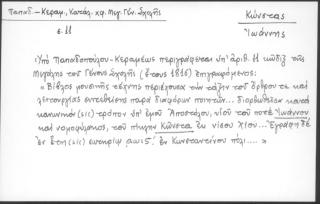 Παπαδ.-Κεραμ., Κατάλ. χφ. Μεγ. Γέν. Σχολῆς
Κώνστας
Ἰωάννης
σ. 11
Ὑπὸ Παπαδοπούλου-Κεραμέως περιγράφεται ὑπ' ἀριθ. 11 κῶδιξ τῆς
Μεγάλης τοῦ Γένους Σχολῆς (ἔτους 1815) ἐπιγραφόμενος:
« Βίβλος μουσικῆς τέχνης περιέχουσα τὴν τάξιν τοῦ ὄρθρου τε καὶ
λειτουργίας συντεθεῖσα παρὰ διαφόρων ποιητῶν... διορθωθεῖσα κατὰ
κανωνικὸν (sic) τρόπον ὑπ' ἐμοῦ Ἀποστόλου, υἱοῦ τοῦ ποτὲ Ἰωάννου
καὶ νομοφύλακος, τοῦ πίκλην Κώνστα ἐκ νίσου Χίου... Ἐγράφη δὲ
ἐν ἔτη (sic) σωτηρίῳ ͵αωιε΄. ἐν Κωνσταντίνου πόλι.... »